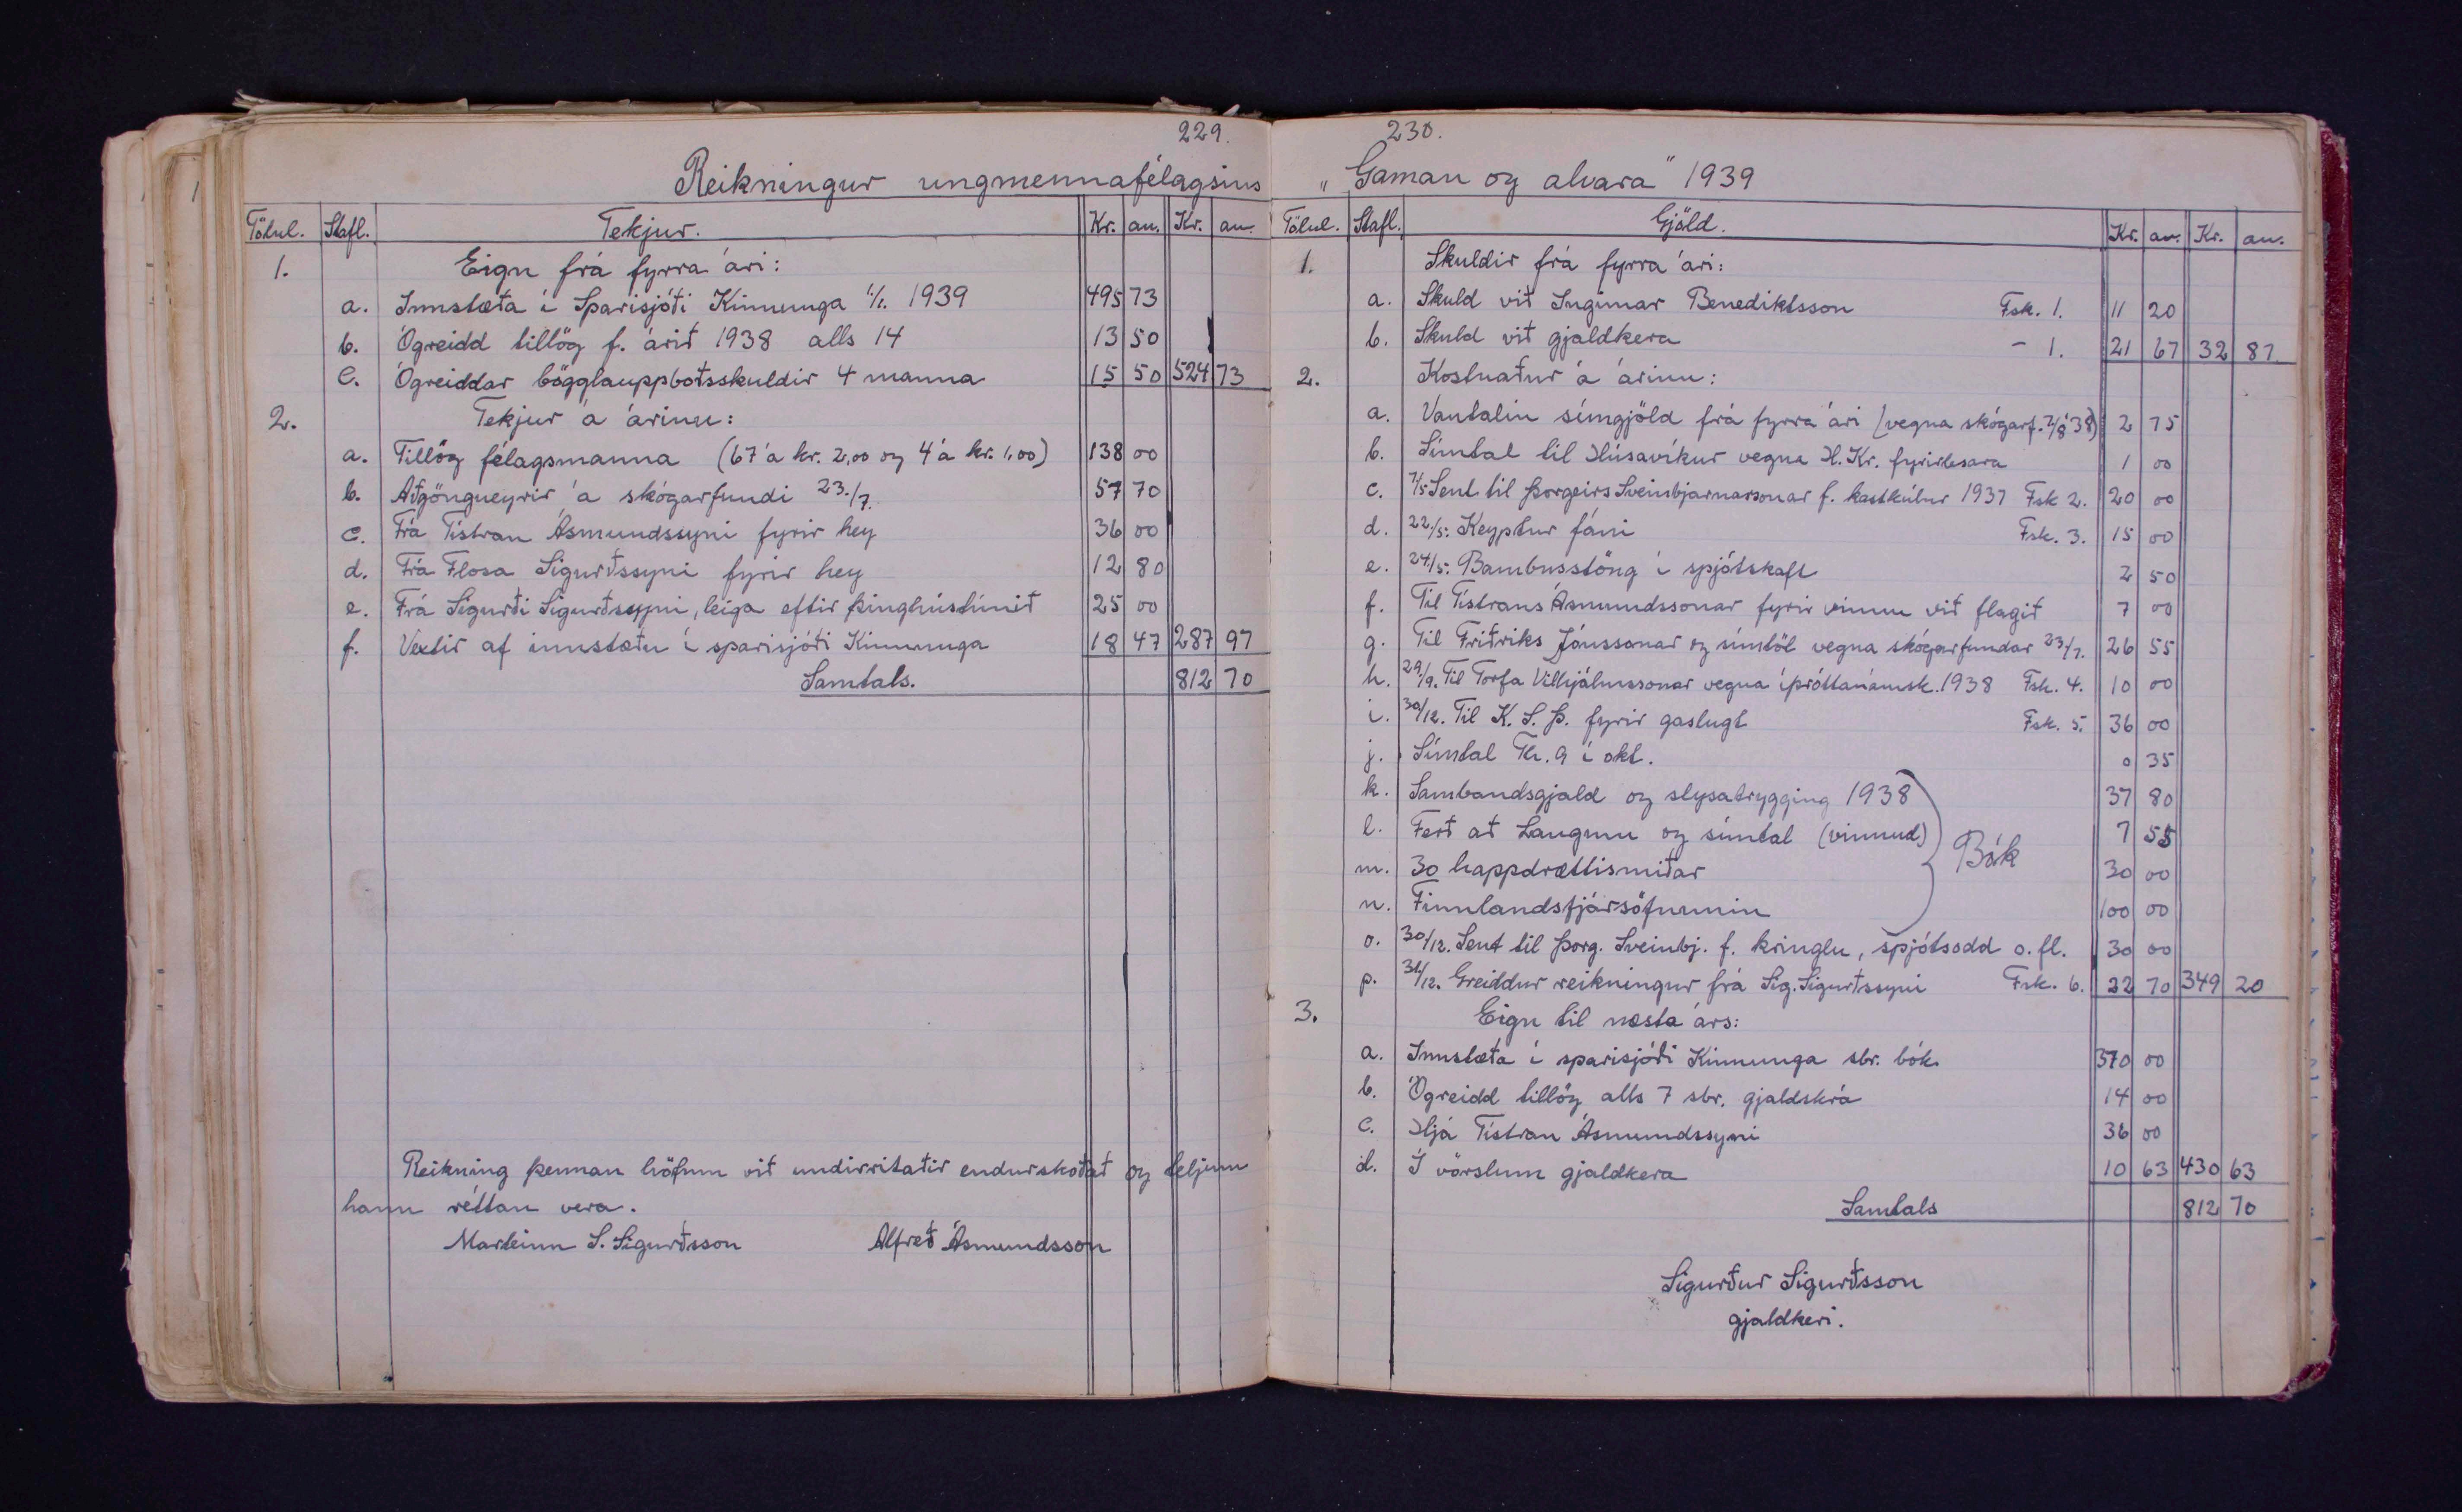 229.
Reikningur ungmennafélagsins
Tölul. Stafl. Tekjur. Kr. au. Kr. au.
1. Eign frá fyrra ári:
a. Innstæta í Sparisjóði Kinnunga 1/1. 1939 495 73
b. Ógreidd tillög f. árið 1938 alls 14 13 50
c. Ógreiddar bögglauppboðsskuldir 4 manna 15 50 524 73
2. Tekjur á árinu:
a. Tillög félagsmanna (67 á kr. 2,00 og 4 á kr. 1,00) 138 00
b. Aðgöngueyrir á skógarfundi 23./7. 57 70
c. Frá Tístran Ásmundssyni fyrir hey 36 00
d. Frá Flosa Sigurðssyni fyrir hey 12 80
e. Frá Sigurði Sigurðssyni, leiga eftir þinghústúnið 25 00
f. Vextir af innstætu í sparisjóði Kinnunga 18 47 287 97
Samtals. 812 70
Reikning þennan höfum við undirritaðir endurskoðað og teljum
hann réttan vera.
Marteinn S. Sigurðsson Alfreð Ásmundsson
230.
"Gaman og alvara" 1939
Tölul. Stafl. Gjöld. Kr. au. Kr. au.
1. Skuldir frá fyrra ári:
a. Skuld við Ingunnar Benediktsson Fsk. 1. 11 20
b. Skuld við gjaldkera – 1. 21 67 32 87
2. Kostnaður á árinu:
a. Vantalin símgjöld frá fyrra ári (vegna skógarf. 7/8 '38) 2 75
b. Símtal til Húsavíkur vegna H. Kr. fyrirlesara 1 00
c. 7/5 Sent til Þorgeirs Sveinbjarnarsonar f. kastkúlur 1937 Fsk 2. 20 00
d. 22/5. Keyptur fáni Fsk. 3. 15 00
e. 24/5. Bambusstöng í spjótskaft 2 50
f. Til Tístrans Ásmundssonar fyrir vinnu við flagið 7 00
g. Til Friðriks Jónssonar og símtöl vegna skógarfundar 23/7. 26 55
h. 29/9. Til Torfa Vilhjálmssonar vegna íþróttanámsk. 1938 Fsk. 4. 10 00
i. 30/12. Til K. S. Þ. fyrir gaslugt Fsk. 5. 36 00
j. Símtal Kr. 9 í okt. 0 35
k. Sambandsgjald og slysatrygging 1938 37 80
l. Ferð að Laugum og símtal (vinnud) 7 55
Bók
m. 30 happdrættismiðar 30 00
n. Finnlandsfjársöfnunin 100 00
o. 30/12. Sent til Þorg. Sveinbj. f. kringlu, spjótsodd o. fl. 30 00
p. 31/12. Greiddur reikningur frá Sig. Sigurðssyni Fsk. 6. 22 70 349 20
3. Eign til næsta árs:
a. Innstæta í sparisjóði Kinnunga sbr. bók 370 00
b. Ógreidd tillög alls 7 sbr. gjaldskrá 14 00
c. Hjá Tístran Ásmundssyni 36 00
d. Í vörslum gjaldkera 10 63 430 63
Samtals 812 70
Sigurður Sigurðsson
gjaldkeri.